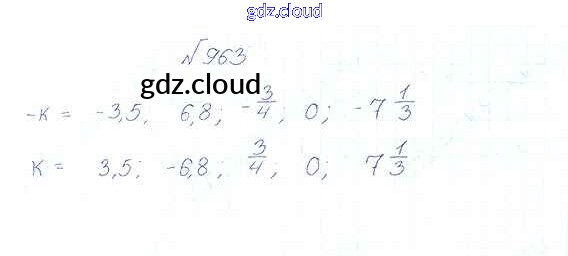 gdz.cloud
№963
gdz.cloud
-к = -3,5, 6,8; -3/4; 0; -7 1/3
К = 3,5; -6,8; 3/4; 0; 7 1/3